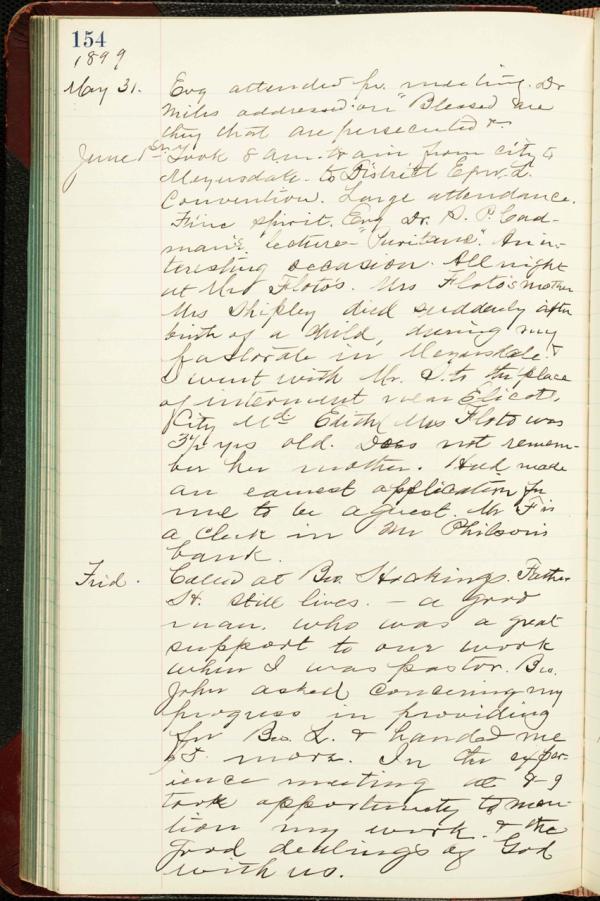 154
1899
May 31. Evg attended pr. meeting. Dr
Miles addressed on "Blessed are
they that are persecuted &c
June 1st Took 8 am. train from city to
Meyersdale. to District Epw. L.
Convention. Large attendance.
Fine spirit. Evg Dr. S. P. Cad-
man's lecture - "Puritans". An in-
teresting occasion. All night
at Mrs Floto's. Mrs Floto's mother
Mrs Shipley died suddenly after
birth of a child, during my
pastorate in Meyersdale. &
I went with Mr. S. to the place
of interment near Elicots
City Md. Edith (Mrs Floto was
3½ yrs old. Does not remem-
ber her mother. Had made
an earnest application for
me to be a guest. Mr F is
a clerk in Mr Philson's
bank.
Frid. Called at Bro. Hockings. Father
H. still lives. - a good
man. who was a great
support to our work
when I was pastor. Bro.
John asked concering my
progress in providing
for Bro. L. & handed me
$5. more. In the exper-
ience meeting at 8-9
took opportunity to men-
tion my work. & the
good dealings of God
with us.